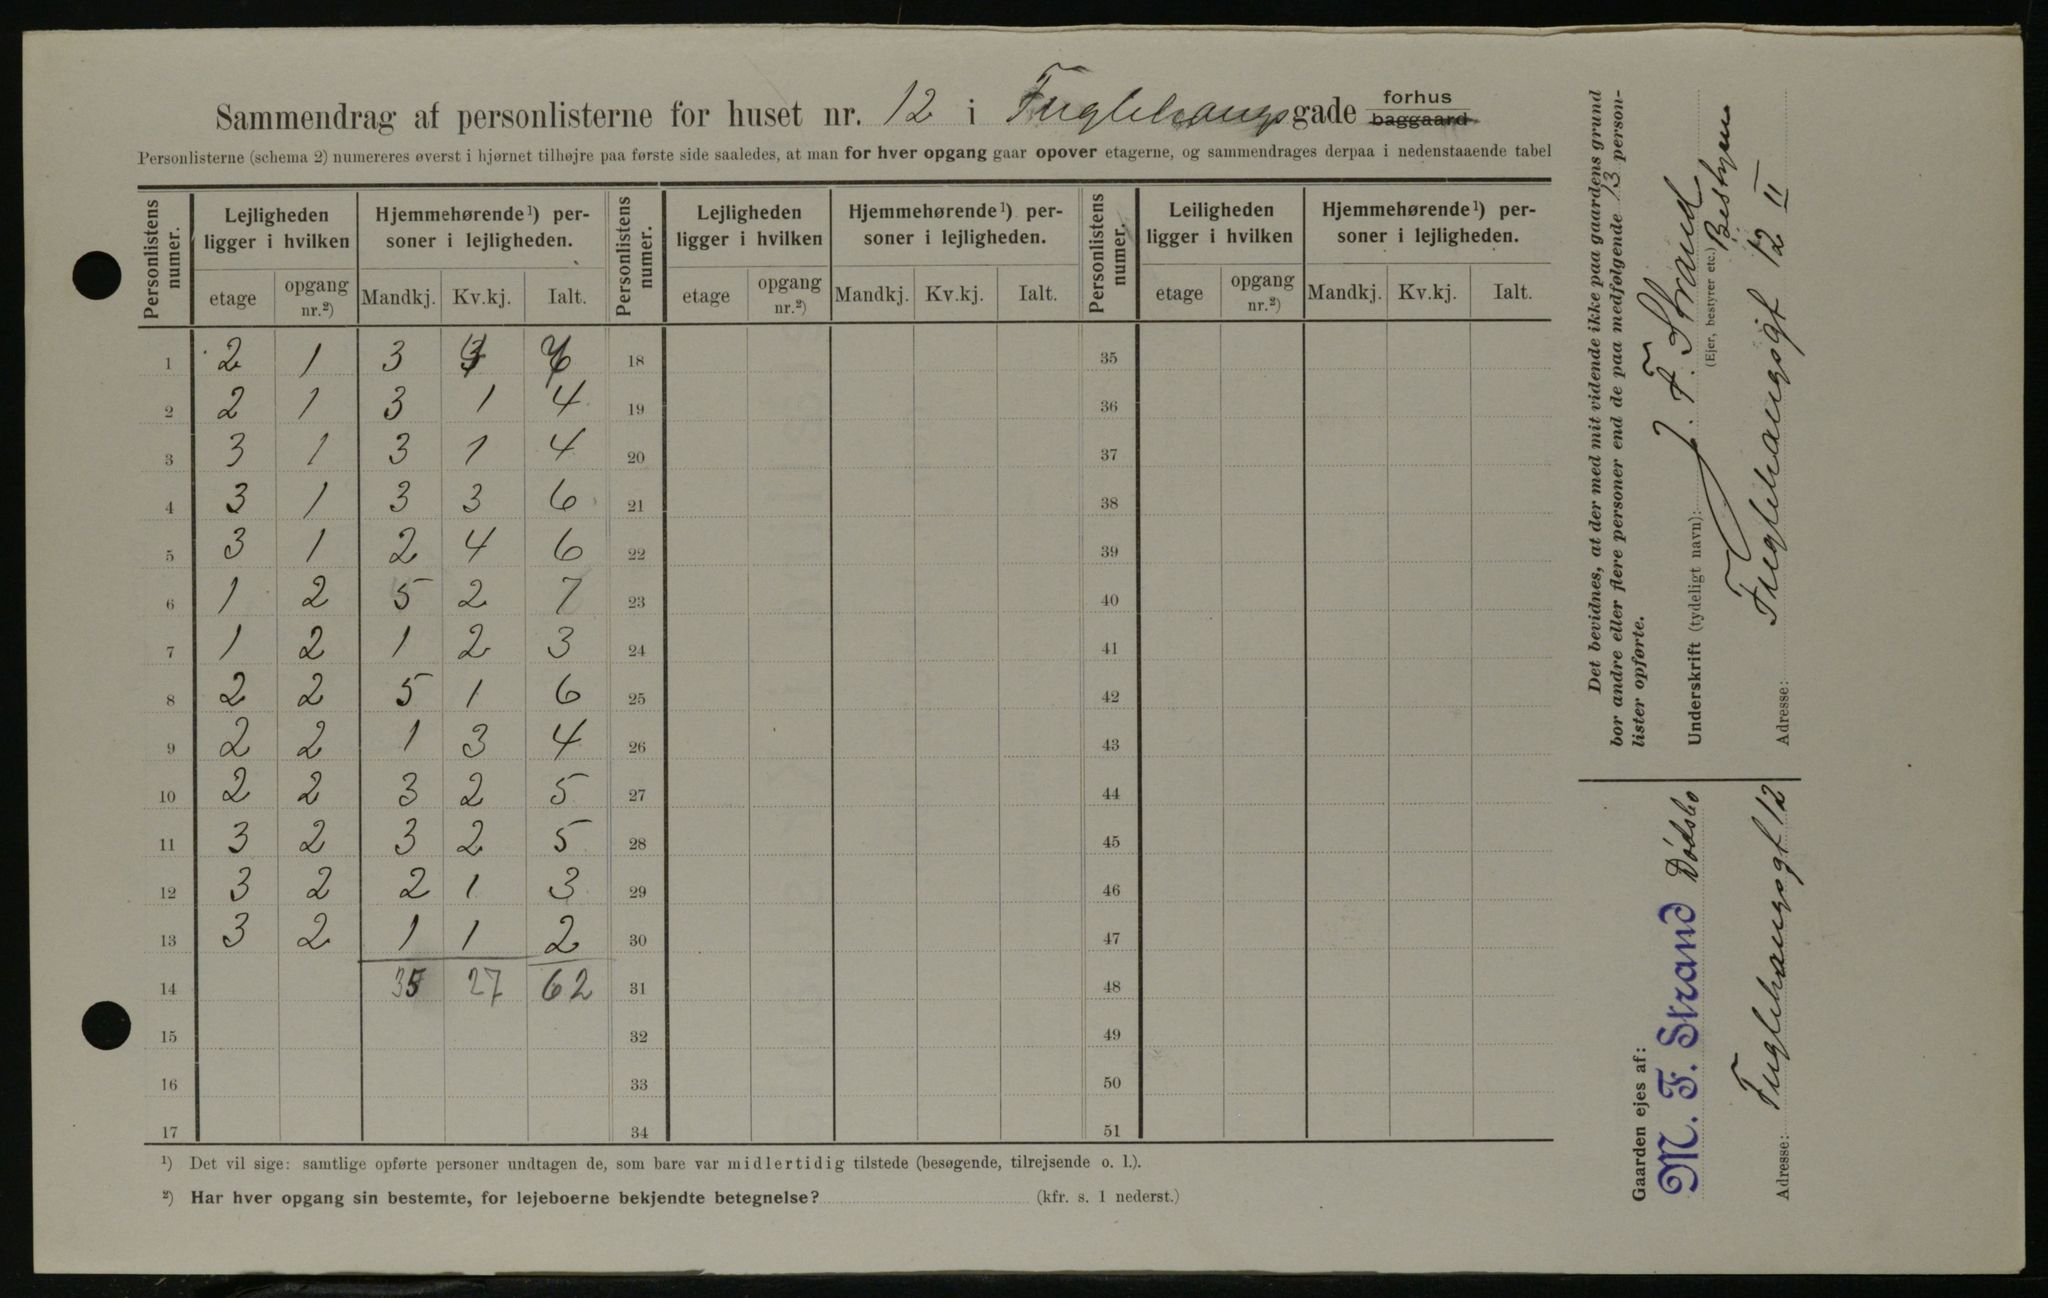 Sammendrag af personlisterne for huset nr. 12 i Fuglehaugsgade forhus baggaard
Personlisterne (schema 2) numereres øverst i hjørnet tilhøjre paa første side saaledes, at man for hver opgang gaar opover etagerne, og sammendrages derpaa i nedenstaaende tabel
Personlistens numer. Lejligheden ligger i hvilken Hjemmehørende¹) personer i lejligheden. Personlistens numer. Lejligheden ligger i hvilken Hjemmehørende¹) personer i lejligheden. Personlistens numer. Leiligheden ligger i hvilken Hjemmehørende¹) personer i lejligheden.
etage opgang nr.²) Mandkj. Kv.kj. Ialt. etage opgang nr.²) Mandkj. Kv.kj. Ialt. etage opgang nr.²) Mandkj. Kv.kj. Ialt.
1 2 1 3 4 7 18 35
2 2 1 3 1 4 19 36
3 3 1 3 1 4 20 37
4 3 1 3 3 6 21 38
5 3 1 2 4 6 22 39
6 1 2 5 2 7 23 40
7 1 2 1 2 3 24 41
8 2 2 5 1 6 25 42
9 2 2 1 3 4 26 43
10 2 2 3 2 5 27 44
11 3 2 3 2 5 28 45
12 3 2 2 1 3 29 46
13 3 2 1 1 2 30 47
14 35 27 62 31 48
15 32 49
16 33 50
17 34 51
¹) Det vil sige: samtlige opførte personer undtagen de, som bare var midlertidig tilstede (besøgende, tilrejsende o. l.).
²) Har hver opgang sin bestemte, for lejeboerne bekjendte betegnelse? (kfr. s. 1 nederst.)
Det bevidnes, at der med mit vidende ikke paa gaardens grund
bor andre eller flere personer end de paa medfølgende 13 person-
lister opførte.
Underskrift (tydeligt navn): J. F. Strand
(Ejer, bestyrer etc.) Bestyrer
Adresse: Fuglehaugsgt 12 II
Gaarden ejes af:
M. F. Strand Dödsbo
Adresse: Fuglehaugsgt 12